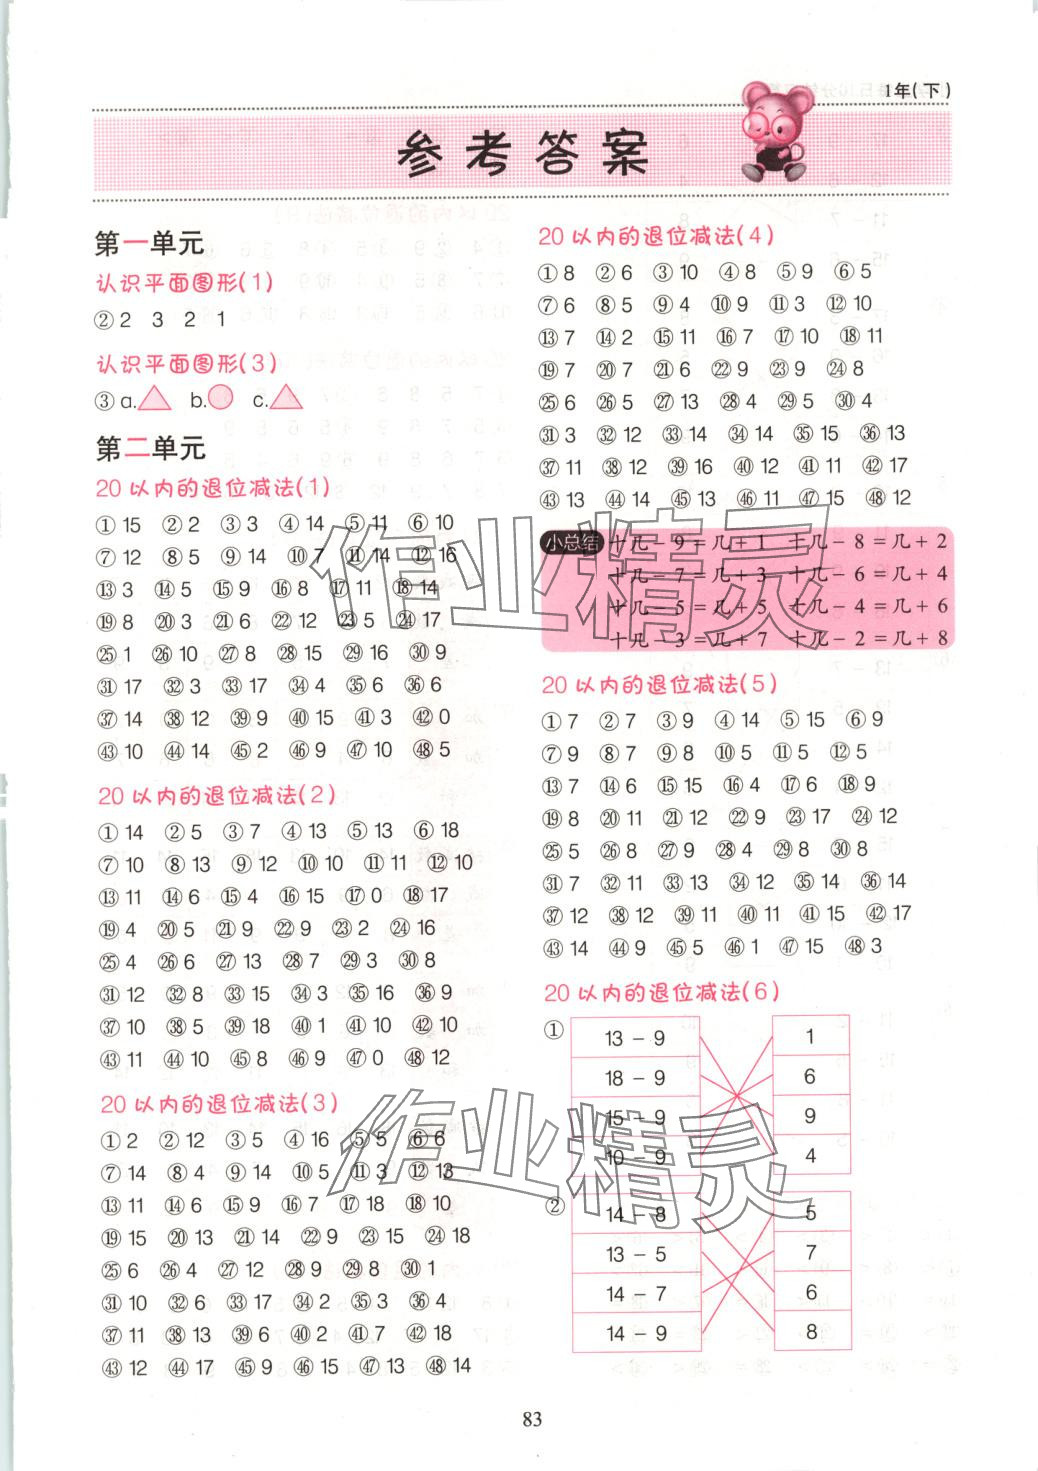 1年(下)
参考答案
第一单元
认识平面图形(1)
②2 3 2 1
认识平面图形(3)
③a. b. c.
第二单元
20以内的退位减法(1)
①15 ②2 ③3 ④14 ⑤11 ⑥10
⑦12 ⑧5 ⑨14 ⑩7 ⑪14 ⑫16
⑬3 ⑭5 ⑮9 ⑯8 ⑰11 ⑱14
⑲8 ⑳3 ㉑6 ㉒12 ㉓5 ㉔17
㉕1 ㉖10 ㉗8 ㉘15 ㉙16 ㉚9
㉛17 ㉜3 ㉝17 ㉞4 ㉟6 ㊱6
㊲14 ㊳12 ㊴9 ㊵15 ㊶3 ㊷0
㊸10 ㊹14 ㊺2 ㊻9 ㊼10 ㊽5
20以内的退位减法(2)
①14 ②5 ③7 ④13 ⑤13 ⑥18
⑦10 ⑧13 ⑨12 ⑩10 ⑪11 ⑫10
⑬11 ⑭6 ⑮4 ⑯15 ⑰0 ⑱17
⑲4 ⑳5 ㉑9 ㉒9 ㉓2 ㉔16
㉕4 ㉖6 ㉗13 ㉘7 ㉙3 ㉚8
㉛12 ㉜8 ㉝15 ㉞3 ㉟16 ㊱9
㊲10 ㊳5 ㊴18 ㊵1 ㊶10 ㊷10
㊸11 ㊹10 ㊺8 ㊻9 ㊼0 ㊽12
20以内的退位减法(3)
①2 ②12 ③5 ④16 ⑤5 ⑥6
⑦14 ⑧4 ⑨14 ⑩5 ⑪3 ⑫13
⑬11 ⑭6 ⑮9 ⑯7 ⑰18 ⑱10
⑲15 ⑳13 ㉑14 ㉒9 ㉓15 ㉔18
㉕6 ㉖4 ㉗12 ㉘9 ㉙8 ㉚1
㉛10 ㉜6 ㉝17 ㉞2 ㉟3 ㊱4
㊲11 ㊳13 ㊴6 ㊵2 ㊶7 ㊷18
㊸12 ㊹17 ㊺9 ㊻15 ㊼13 ㊽14
20以内的退位减法(4)
①8 ②6 ③10 ④8 ⑤9 ⑥5
⑦6 ⑧5 ⑨4 ⑩9 ⑪3 ⑫10
⑬7 ⑭2 ⑮11 ⑯7 ⑰10 ⑱11
⑲7 ⑳7 ㉑6 ㉒9 ㉓9 ㉔8
㉕6 ㉖5 ㉗13 ㉘4 ㉙5 ㉚4
㉛3 ㉜12 ㉝14 ㉞14 ㉟15 ㊱13
㊲11 ㊳12 ㊴14 ㊵12 ㊶11 ㊷17
㊸13 ㊹14 ㊺13 ㊻11 ㊼15 ㊽12
小总结 十几－9＝几＋1 十几－8＝几＋2
十几－7＝几＋3 十几－6＝几＋4
十几－5＝几＋5 十几－4＝几＋6
十几－3＝几＋7 十几－2＝几＋8
20以内的退位减法(5)
①7 ②7 ③9 ④14 ⑤15 ⑥9
⑦9 ⑧7 ⑨8 ⑩5 ⑪5 ⑫5
⑬7 ⑭6 ⑮15 ⑯4 ⑰6 ⑱9
⑲8 ⑳11 ㉑12 ㉒9 ㉓17 ㉔12
㉕5 ㉖8 ㉗9 ㉘4 ㉙8 ㉚8
㉛7 ㉜11 ㉝13 ㉞12 ㉟14 ㊱14
㊲12 ㊳12 ㊴11 ㊵11 ㊶15 ㊷17
㊸14 ㊹9 ㊺5 ㊻1 ㊼15 ㊽3
20以内的退位减法(6)
① 13－9 1
18－9 6
15－9 9
10－9 4
② 14－8 5
13－5 7
14－7 6
14－9 8
作业精灵
作业精灵
83